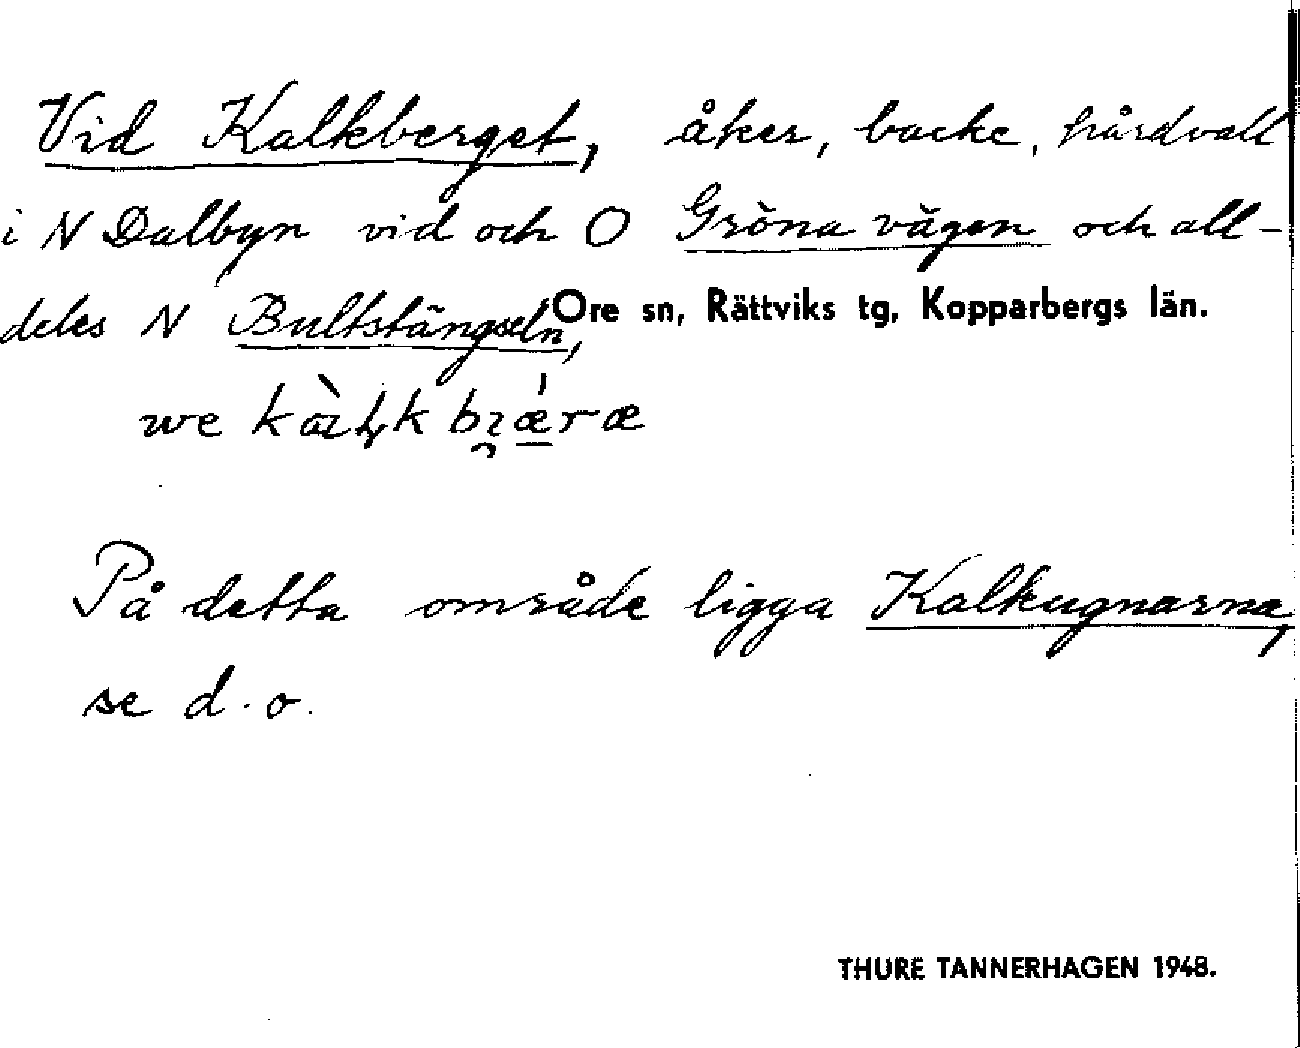 Vid Kalkberget, åker, backe, hårdvall
i N Dalbyn vid och O Gröna vägen och all-
deles N Bultstängseln,
Ore sn, Rättviks tg, Kopparbergs län.
we
På detta område ligga Kalkugnarna,
se d.o.
THURE TANNERHAGEN 1948.